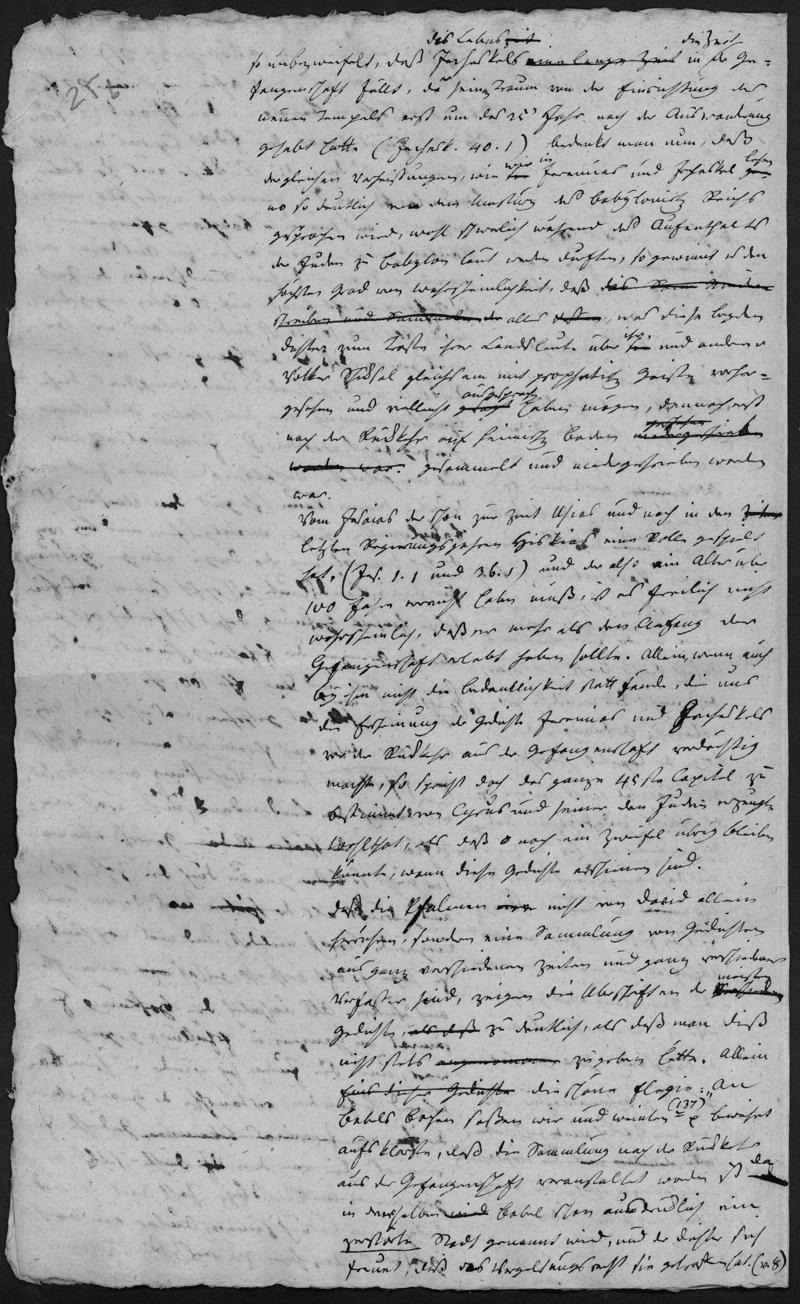 das Lebens die Zeit
so unbezweifelt, daß Jecheskels eine lange Zeit in die Ge-
fangenschaft fällt, da sein Traum von der Einrichtung des
neuen Tempels erst um das 25' Jahr nach der Auswanderung
gehabt hatte (Jechesk. 40. 1) bedenkt man nun, daß
dergleichen Verheissungen, wie wir in Jeremias und Jecheskel lesen
wo so deutlich von dem Umsturz des babylonisch Reichs
gesprochen wird, wohl schwerlich während des Aufenthaltes
der Juden zu Babylon laut werden durften, so gewinnt es den
höchsten Grad von Wahrscheinlichkeit, daß
alles, was diese beyden
Dichter zum Troste ihrer Landsleute über ihr und anderer
Völker Schiksal gleichsam mit prophetisch Geiste vorher-
gesehen und vielleicht ausgesproch haben mögen, dennoch erst
nach der Rückkehr auf heimisch Boden
worden war. gesammelt und niedergeschrieben worden
war.
Vom Jesaias der schon zur Zeit Usias und noch in den
letzten Regierungsjahren Hiskias eine Rolle gespielt
hat, (Jes. 1. 1 und 36. 1) und der also ein Alter über
100 Jahre erreicht haben muß, ist es freilich nicht
wahrscheinlich, daß er mehr als den Anfang der
Gefangenschaft erlebt haben sollte. Allein, wenn auch
bey ihm nicht die Bedenklichkeit statt fände, die uns
die Erscheinung der Gedichte Jeremias und Jecheskels
vor der Rückkehr aus der Gefangenschaft verdächtig
machte, so spricht doch das ganze 45ste Capitel zu
bestimmt von Cyrus und seiner den Juden erzeugte
Wohlthat, als daß noch ein Zweifel übrig bleiben
könnte, wann diese Gedichte erschienen sind.
Daß die Psalmen nicht von David allein
herrühren, sondern eine Sammlung von Gedichten
aus ganz verschiedenen Zeiten und ganz verschiedener
Verfasser sind, zeigen die Überschriften der meisten
Gedichte, als daß zu deutlich, als daß man dieß
nicht stets angenommen zugeben hätte. Allein
Eins dieser Gedichte die schöne Elegie: „An
Babels Bächen saßen wir und weinten (137) beweiset
aufs klarste, daß die Sammlung nach der Rückkehr
aus der Gefangenschaft veranstaltet worden ist da
in derselben wird Babel schon ausdrücklich eine
zerstörte Stadt genannt wird, und der Dichter sich
freuet, daß das Vergeltungsrecht sie getroffen hat. (v. 8)